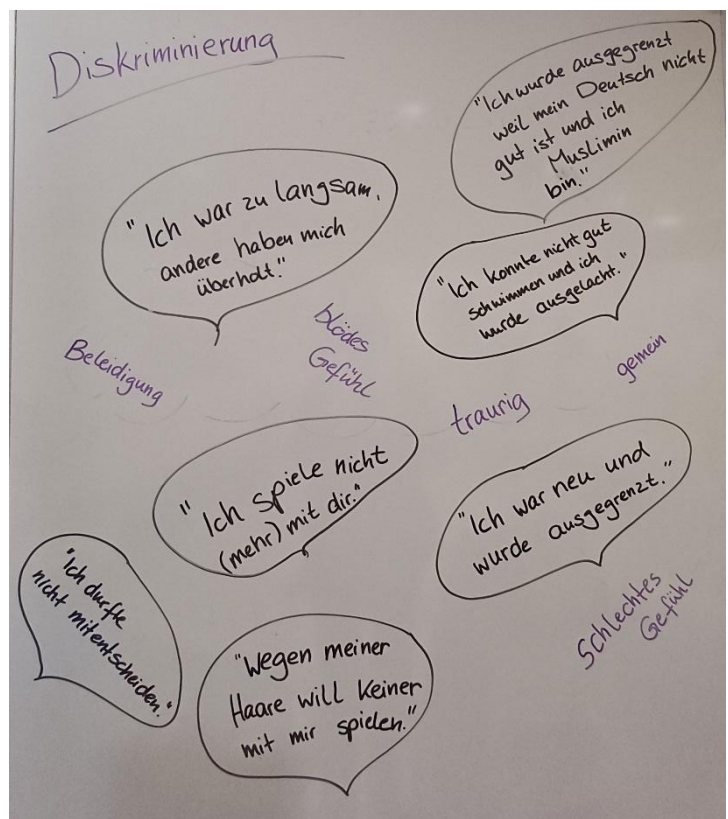 Diskriminierung
"Ich wurde ausgegrenzt
weil mein Deutsch nicht
gut ist und ich
Muslimin
bin."
"Ich war zu langsam,
andere haben mich
überholt."
"Ich konnte nicht gut
schwimmen und ich
wurde ausgelacht."
blödes
Gefühl
Beleidigung
gemein
traurig
"Ich spiele nicht
(mehr) mit dir."
"Ich war neu und
wurde ausgegrenzt."
"Ich durfte
nicht mitentscheiden."
Schlechtes
Gefühl
"Wegen meiner
Haare will keiner
mit mir spielen."